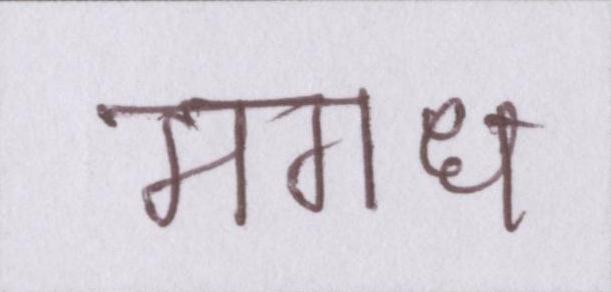 मगध